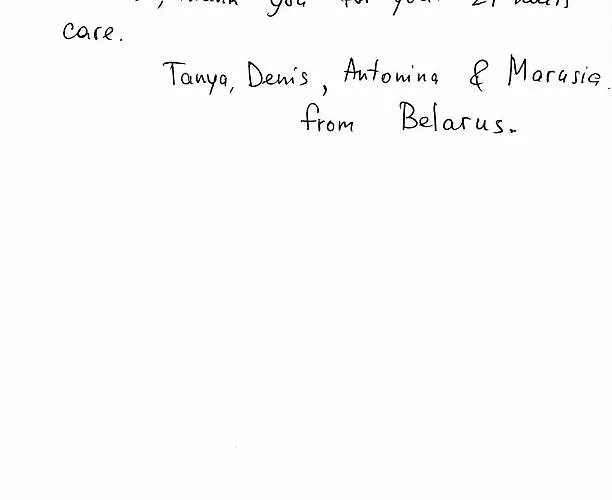 , thank you for your 24 hours
care.
Tanya, Denis, Antonina & Marusia
from Belarus.